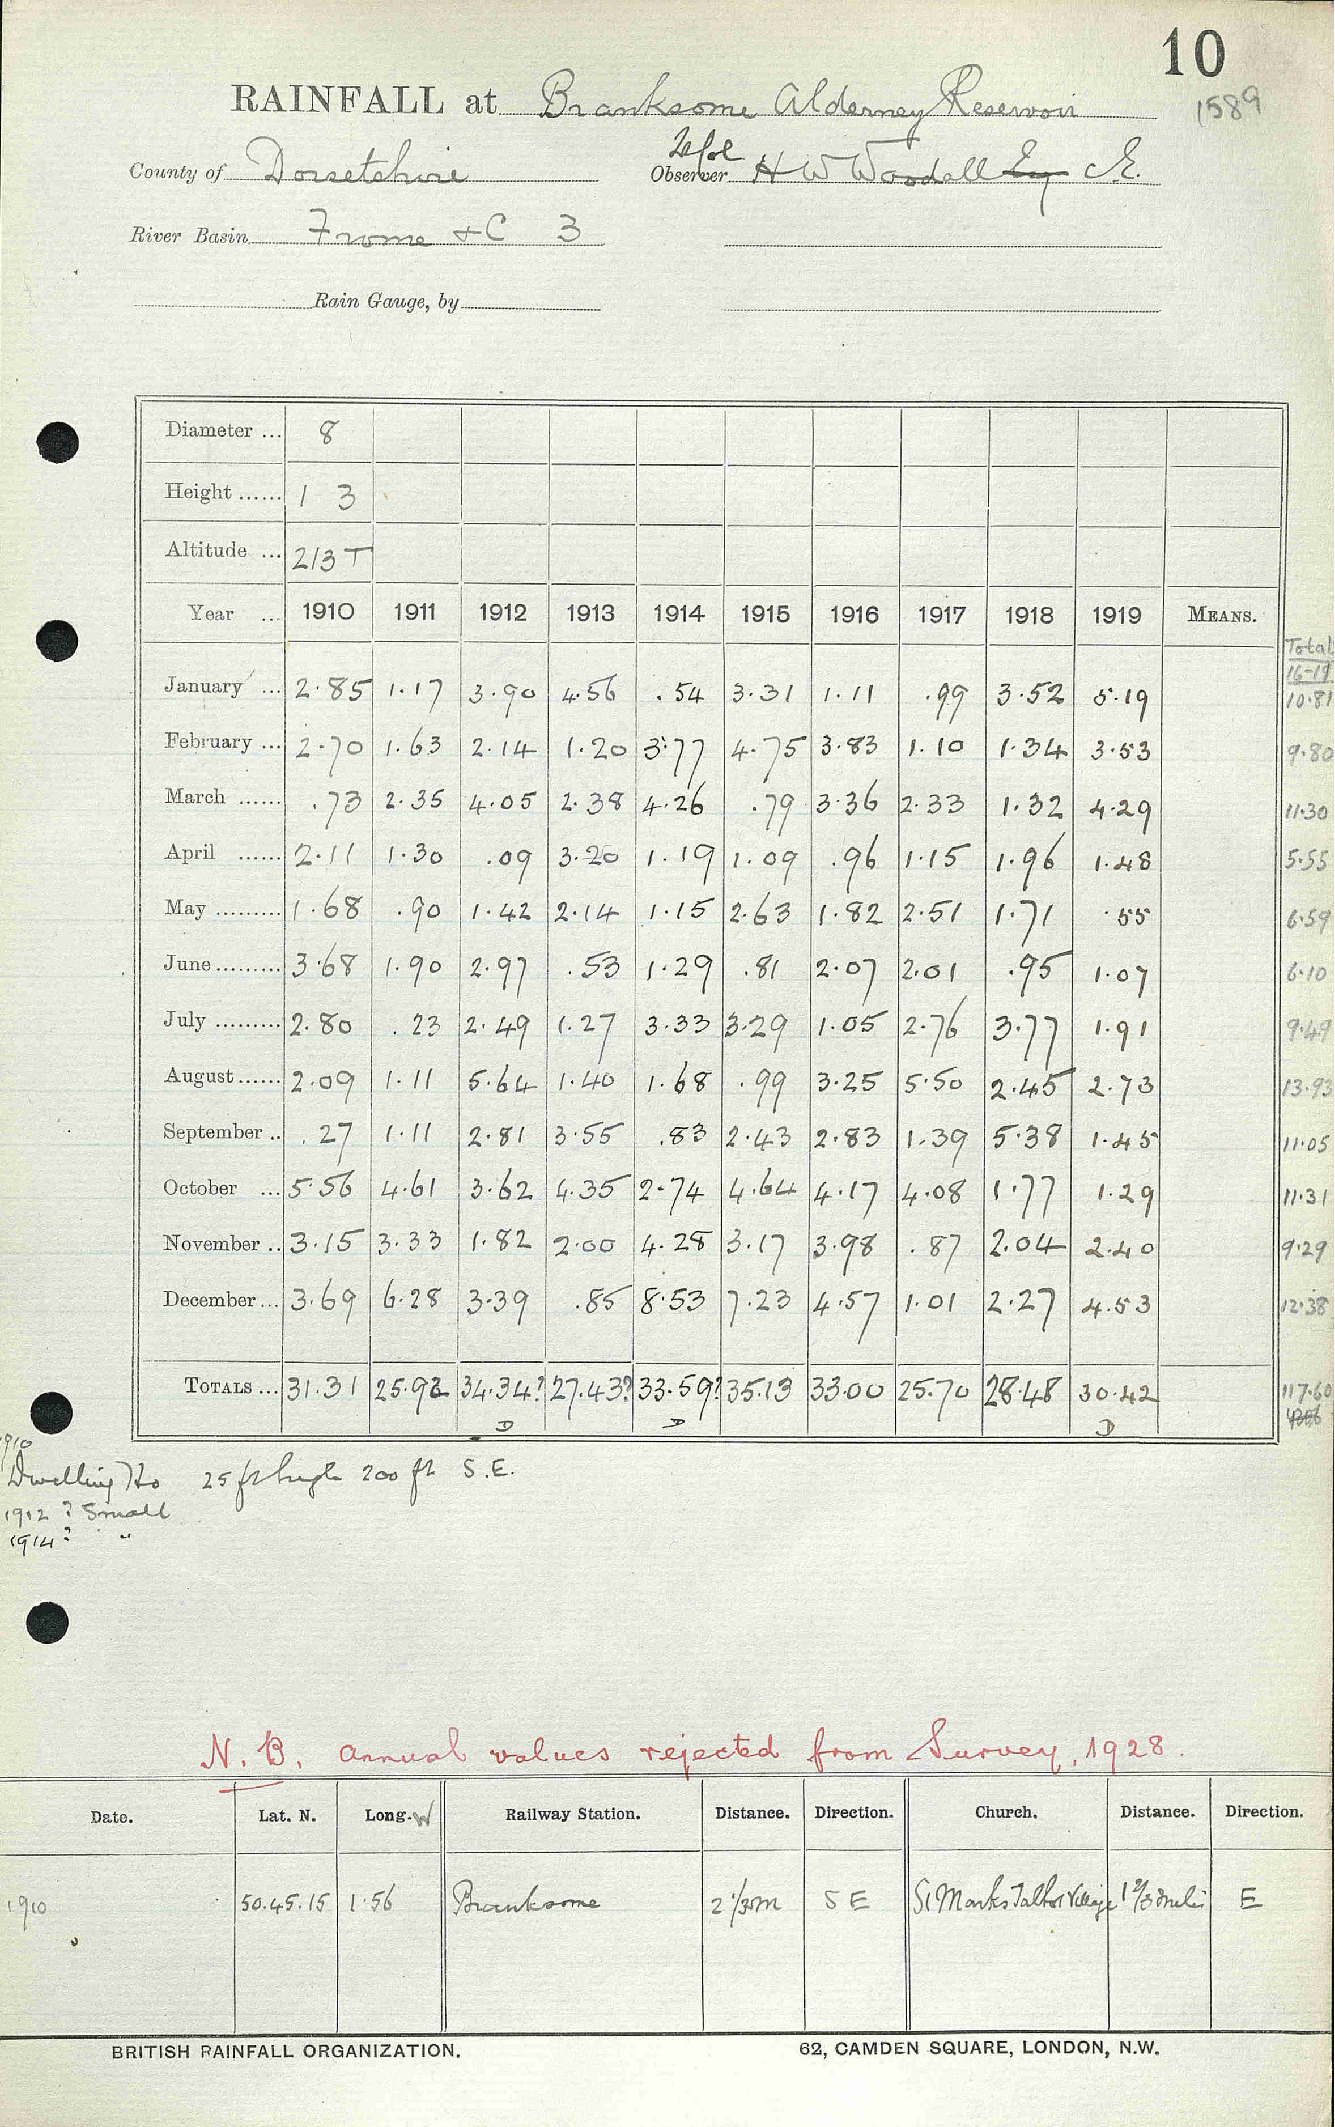 10
RAINFALL at Branksome Alderney Reservoir 1589
County of Dorsetshire Observer H W Woodall Esq C.E.
River Basin Frome & C 3
Rain Gauge, by
Diameter ... 8
Height ...... 1 3
Altitude ... 213 T
Year ... 1910 1911 1912 1913 1914 1915 1916 1917 1918 1919 MEANS.
Total
16-19
January ... 2.85 1.17 3.90 4.56 .54 3.31 1.11 .99 3.52 5.19 10.81
February ... 2.70 1.63 2.14 1.20 3.77 4.75 3.83 1.10 1.34 3.53 9.80
March ...... .73 2.35 4.05 2.38 4.26 .79 3.36 2.33 1.32 4.29 11.30
April ...... 2.11 1.30 .09 3.20 1.19 1.09 .96 1.15 1.96 1.48 5.55
May ......... 1.68 .90 1.42 2.14 1.15 2.63 1.82 2.51 1.71 .55 6.59
June ......... 3.68 1.90 2.97 .53 1.29 .81 2.07 2.01 .95 1.07 6.10
July ......... 2.80 .23 2.49 1.27 3.33 3.29 1.05 2.76 3.77 1.91 9.49
August ...... 2.09 1.11 5.64 1.40 1.68 .99 3.25 5.50 2.45 2.73 13.93
September .. .27 1.11 2.81 3.55 .83 2.43 2.83 1.39 5.38 1.45 11.05
October ... 5.56 4.61 3.62 4.35 2.74 4.64 4.17 4.08 1.77 1.29 11.31
November .. 3.15 3.33 1.82 2.00 4.28 3.17 3.98 .87 2.04 2.40 9.29
December ... 3.69 6.28 3.39 .85 8.53 7.23 4.57 1.01 2.27 4.53 12.38
TOTALS ... 31.31 25.92 34.34? 27.43? 33.59? 35.13 33.00 25.70 28.48 30.42 117.60
D D D
1910
Dwelling Ho 25 ft high 200 ft S.E.
1912 ? Small
1914 ? "
N.B. Annual values rejected from Survey, 1928.
Date. Lat. N. Long. W Railway Station. Distance. Direction. Church. Distance. Direction.
1910 50.45.15 1.56 Branksome 2 1/3 m S E St Marks Talbot Village 1 2/3 miles E
BRITISH RAINFALL ORGANIZATION. 62, CAMDEN SQUARE, LONDON, N.W.